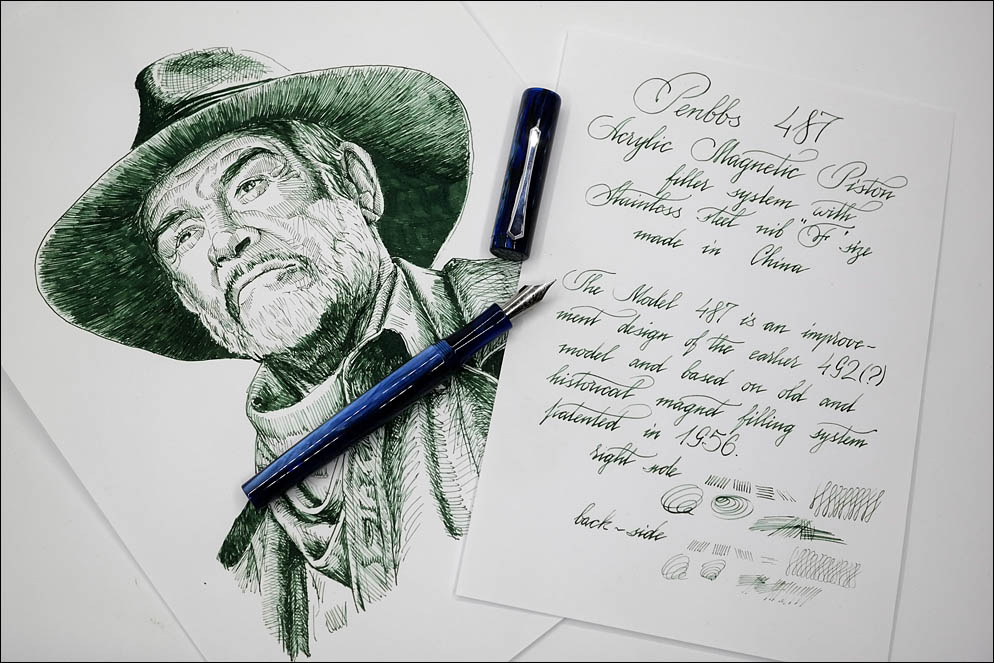 Penbbs 487
Acrylic Magnetic Piston
filler system with
Stainless steel nib "F" size
made in China
The Model 487 is an improve-
ment design of the earlier 492(?)
model and based on old and
historical magnet filling system
patented in 1956.
right side
back-side